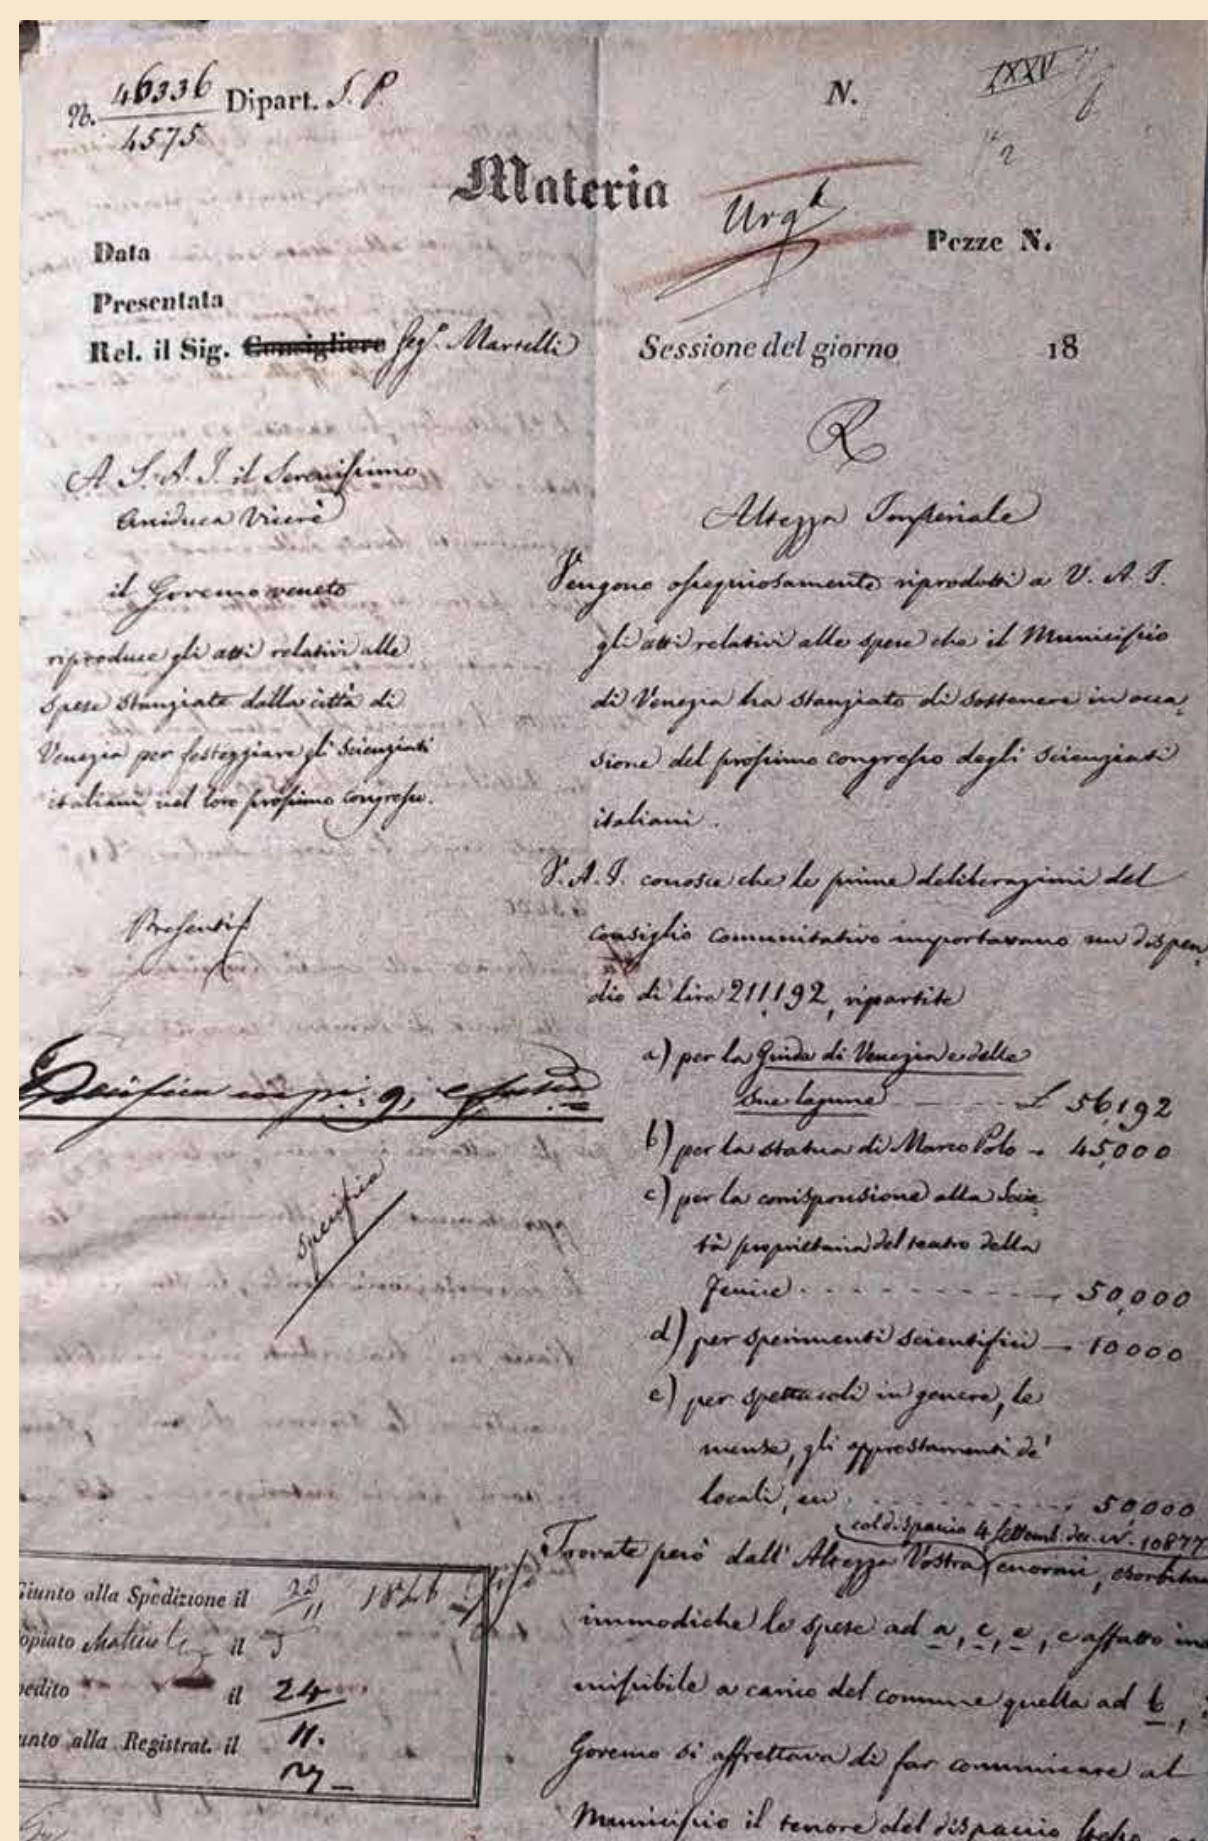 N. 46336 Dipart. S. P.
4575
N.
LXXV
2
Materia
Urg
Data
Pezze N.
Presentata
Rel. il Sig. Consigliere Seg. Martelli
Sessione del giorno 18
A. S. A. I. il Serenissimo
Arciduca Vicerè
il Governo veneto
riproduce gli atti relativi alle
spese stanziate dalla città di
Venezia per festeggiare gli scienziati
italiani nel loro prossimo congresso.
Presenti
specifica
Giunto alla Spedizione il 23/11 1846
opiato il
pedito il 24
unto alla Registrat. il 11.
R
Altezza Imperiale
Vengono ossequiosamente riprodotti a V. A. I.
gli atti relativi alle spese che il Municipio
di Venezia ha stanziato di sostenere in occa=
sione del prossimo congresso degli scienziati
italiani.
V. A. I. conosce che le prime deliberazioni del
consiglio comunitativo importavano un dispen=
dio di lire 211,192, ripartite
a) per la Guida di Venezia e delle
sue lagune £ 56,192
b) per la statua di Marco Polo - 45,000
c) per la corrisponsione alla Socie=
tà proprietaria del teatro della
Fenice - 50,000
d) per sperimenti scientifici - 10000
e) per spettacoli in genere, le
mense, gli apprestamenti de'
locali, - 50000
col dispaccio 4 Settemb. dec. N. 10877
Trovate però dall'Altezza Vostra enormi, esorbitan
immodiche le spese ad a, c, e, e affatto ina
missibile a carico del comune quella ad b,
Governo si affrettava di far comunicare al
Municipio il tenore del dispaccio